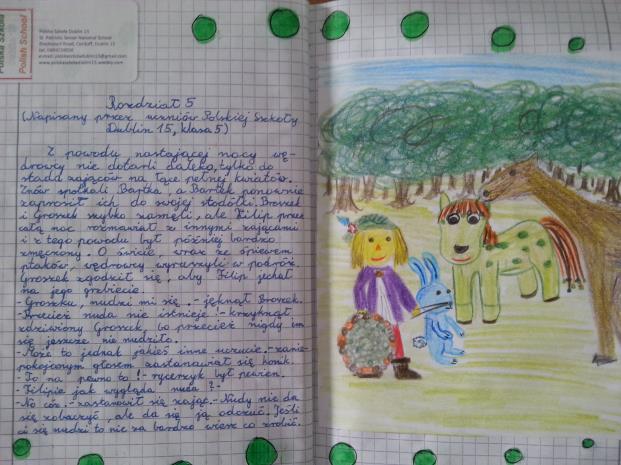 Polska Szkoła
Polish School
Polska Szkoła Dublin 15
St. Patricks Senior National School
Dublin 15
Rozdział 5
(Napisany przez uczniów Polskiej Szkoły
Dublin 15, klasa 5)
Z powodu nastającej nocy wę-
drowcy nie dotarli daleko, tylko do
stada zajęcy na łące pełnej kwiatów.
Znów spotkali Bartka, a Bartek ponownie
zaprosił ich do swojej stodółki. Broszek
i Groszek szybko zasnęli, ale Filip przez
całą noc rozmawiał z innymi zającami
i z tego powodu był później bardzo
zmęczony. O świcie, wraz ze śpiewem
ptaków, wędrowcy wyruszyli w podróż.
Groszek zgodził się, aby Filip jechał
na jego grzbiecie.
- Groszku, nudzi mi się. - jęknął Broszek.
- Przecież nuda nie istnieje! - krzyknął
zdziwiony Groszek, bo przecież nigdy im
się jeszcze nie nudziło.
- Może to jednak jakieś inne uczucie. - zanie-
pokojonym głosem zastanawiał się konik.
- To na pewno to! - rycerzyk był pewien.
- Filipie jak wygląda nuda? -
- No cóż. - zastanowił się zając. - Nudy nie da
się zobaczyć, ale da się ją odczuć. Jeśli
ci się nudzi to nie za bardzo wiesz co zrobić.